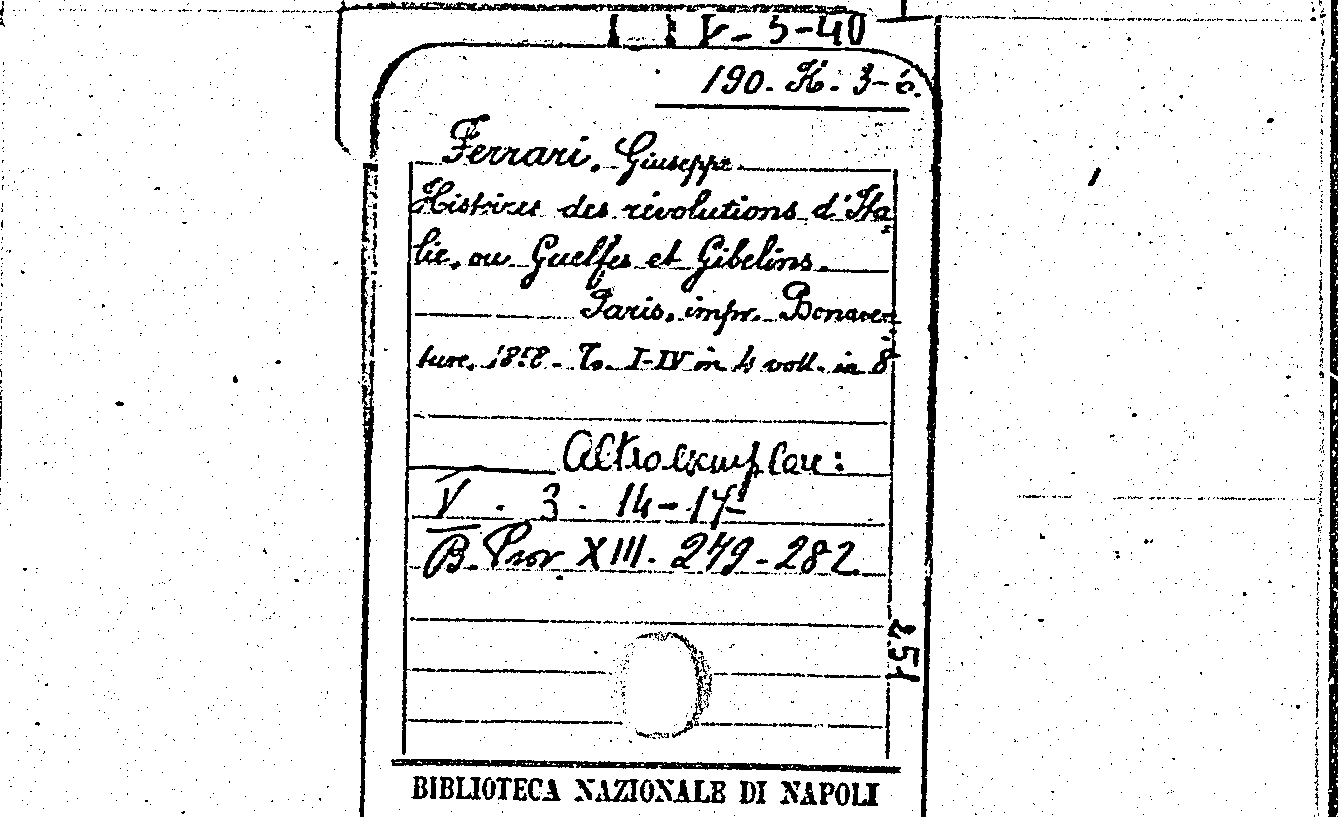 V-5-40
190. K. 3-6.
Ferrari, Giuseppe
Histoires des révolutions d'Ita=
lie, ou Guelfes et Gibelins.
Paris, impr. Bonaven=
ture, 1858. To. I-IV in 4 voll. in 8°
Altro esemplare:
V . 3 . 14-17
B. Prov. XIII. 279-282
251
BIBLIOTECA NAZIONALE DI NAPOLI